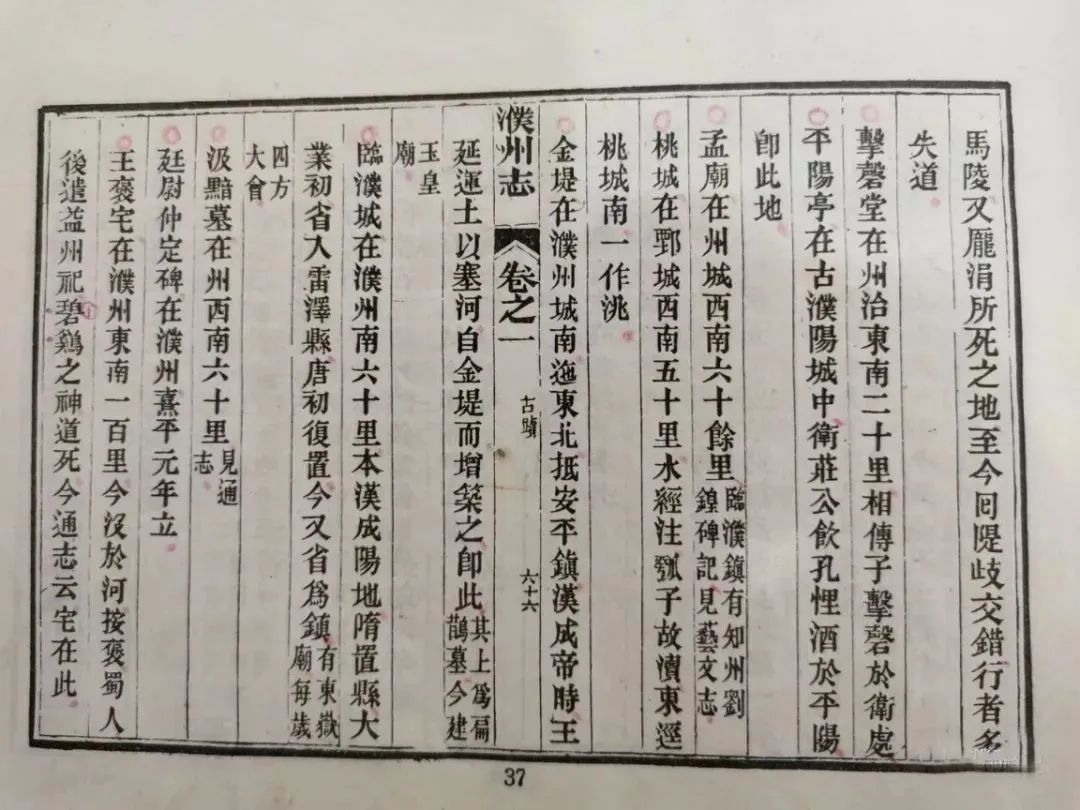 馬陵又龎涓所死之地至今囘隄歧交錯行者多
失道
擊磬堂在州治東南二十里相傳子擊磬於衛處
平陽亭在古濮陽城中衛莊公飲孔悝酒於平陽
卽此地
孟廟在州城西南六十餘里臨濮鎮有知州劉
鍠碑記見藝文志
桃城在鄄城西南五十里水經注瓠子故瀆東逕
桃城南一作洮
金堤在濮州城南迤東北抵安平鎮漢成帝時王
濮州志 卷之一 古蹟 六十六
延運土以塞河自金堤而增築之卽此其上爲扁
鵲墓今建
玉皇
廟
臨濮城在濮州南六十里本漢成陽地隋置縣大
業初省入雷澤縣唐初復置今又省爲鎮有東嶽
廟每歲
四方
大會
汲黯墓在州西南六十里見通
志
廷尉仲定碑在濮州熹平元年立
王褒宅在濮州東南一百里今沒於河按褒蜀人
後遣益州祀碧鷄之神道死今通志云宅在此
37